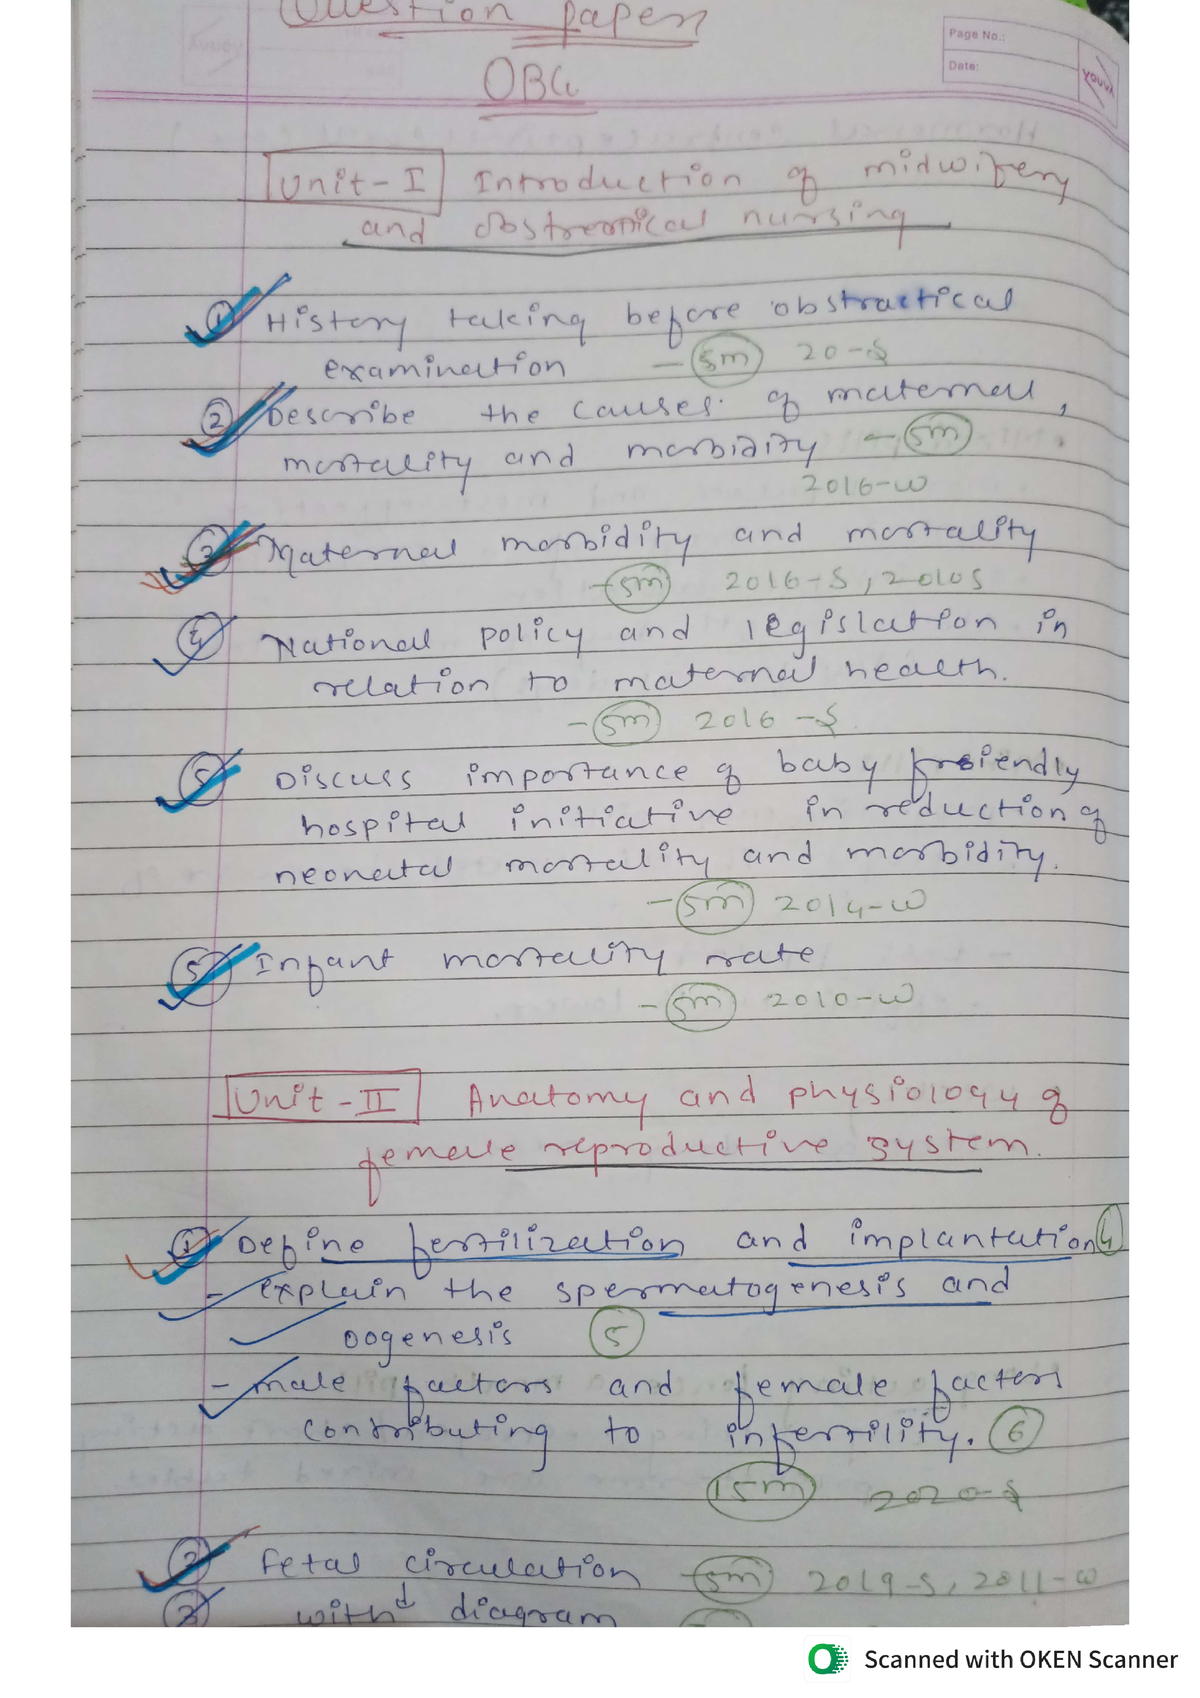 Question paper
OBG
Page No.:
Date:
YOUVA
Unit-I Introduction of midwifery
and obstremical nursing
① History taking before obstractical
examination - 5m 20-S
② Describe the causes of maternal,
mortality and morbidity - 5m
2016-W
③ Maternal morbidity and mortality
- 5m 2016-S, 2010S
④ National policy and legislation in
relation to maternal health.
- 5m 2016-S
⑤ Discuss importance of baby friendly
hospital initiative in reduction of
neonatal mortality and morbidity.
- 5m 2014-W
⑤ Infant mortality rate
- 5m 2010-W
Unit-II Anatomy and physiology of
female reproductive system.
① Define fertilization and implantation 4
- explain the spermatogenesis and
oogenesis 5
- male factors and female factors
contributing to infertility. 6
15m 2020-S
② Fetal circulation - 5m 2019-S, 2011-W
③ with diagram
Scanned with OKEN Scanner